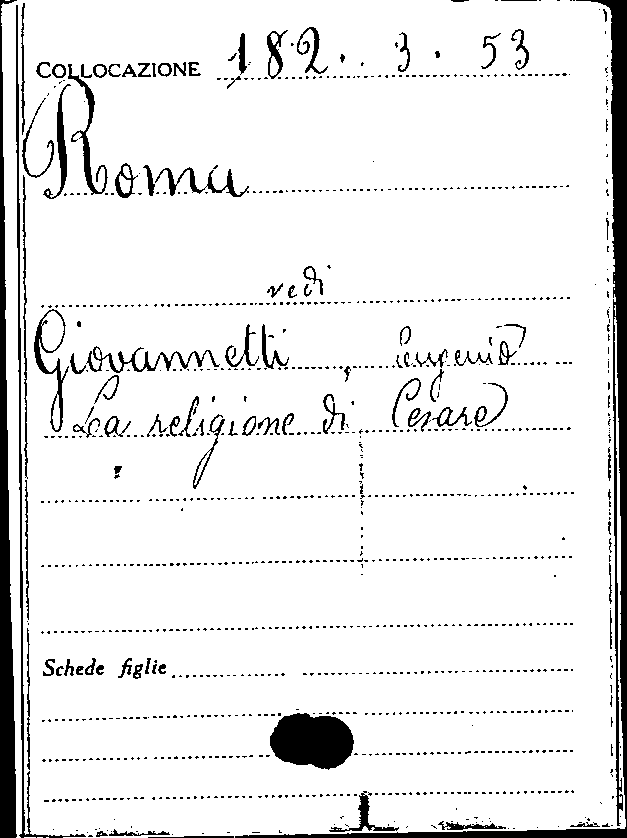 COLLOCAZIONE 182. . 3. 53
Roma
vedi
Giovannetti, Eugenio
La religione di Cesare
Schede figlie